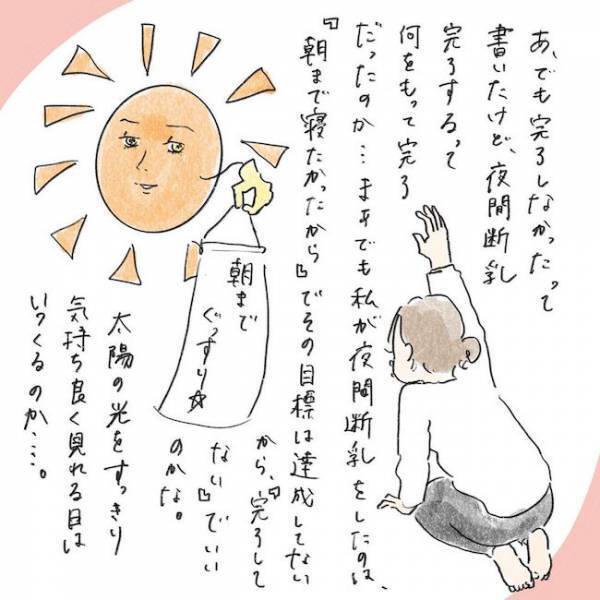 あ、でも完了しなかったって
書いたけど、夜間断乳
完了するって
何をもって完了
だったのか…まぁでも私が夜間断乳をしたのは、
『朝まで寝たかったから』でその目標は達成してない
から、『完了して
ない』でいい
のかな。
朝まで
ぐっすり☆
太陽の光をすっきり
気持ち良く見れる日は
いつくるのか…。